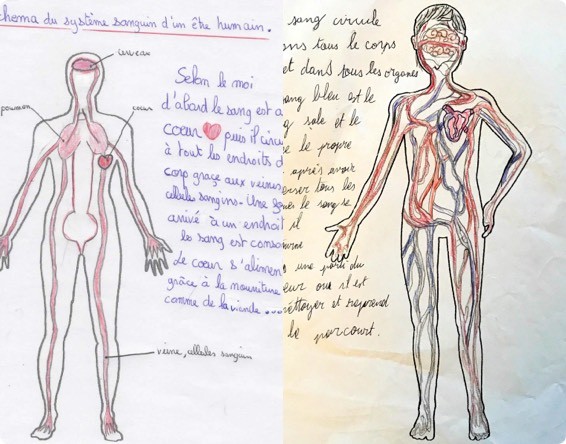 chema du système sanguin d'un être humain.
cerveau
poumon
coeur
Selon le moi
d'abord le sang est a
cœur puis il circu
à tout les endroits d
corp graçe aux veines
cellules sangins. Une
arrivé à un endroit
le sang est conso
Le cœur s'alimen
grâce à la nourriture
comme de la viande...
veine, cellules sanguin
sang circule
ns tous le corps
et dans tous les organes
ang bleu est le
g sale et le
e le propre
après avoir
erser tous les
le sang se
il
une parti du
eur ou il est
nettoyer et reprend
le parcourt.